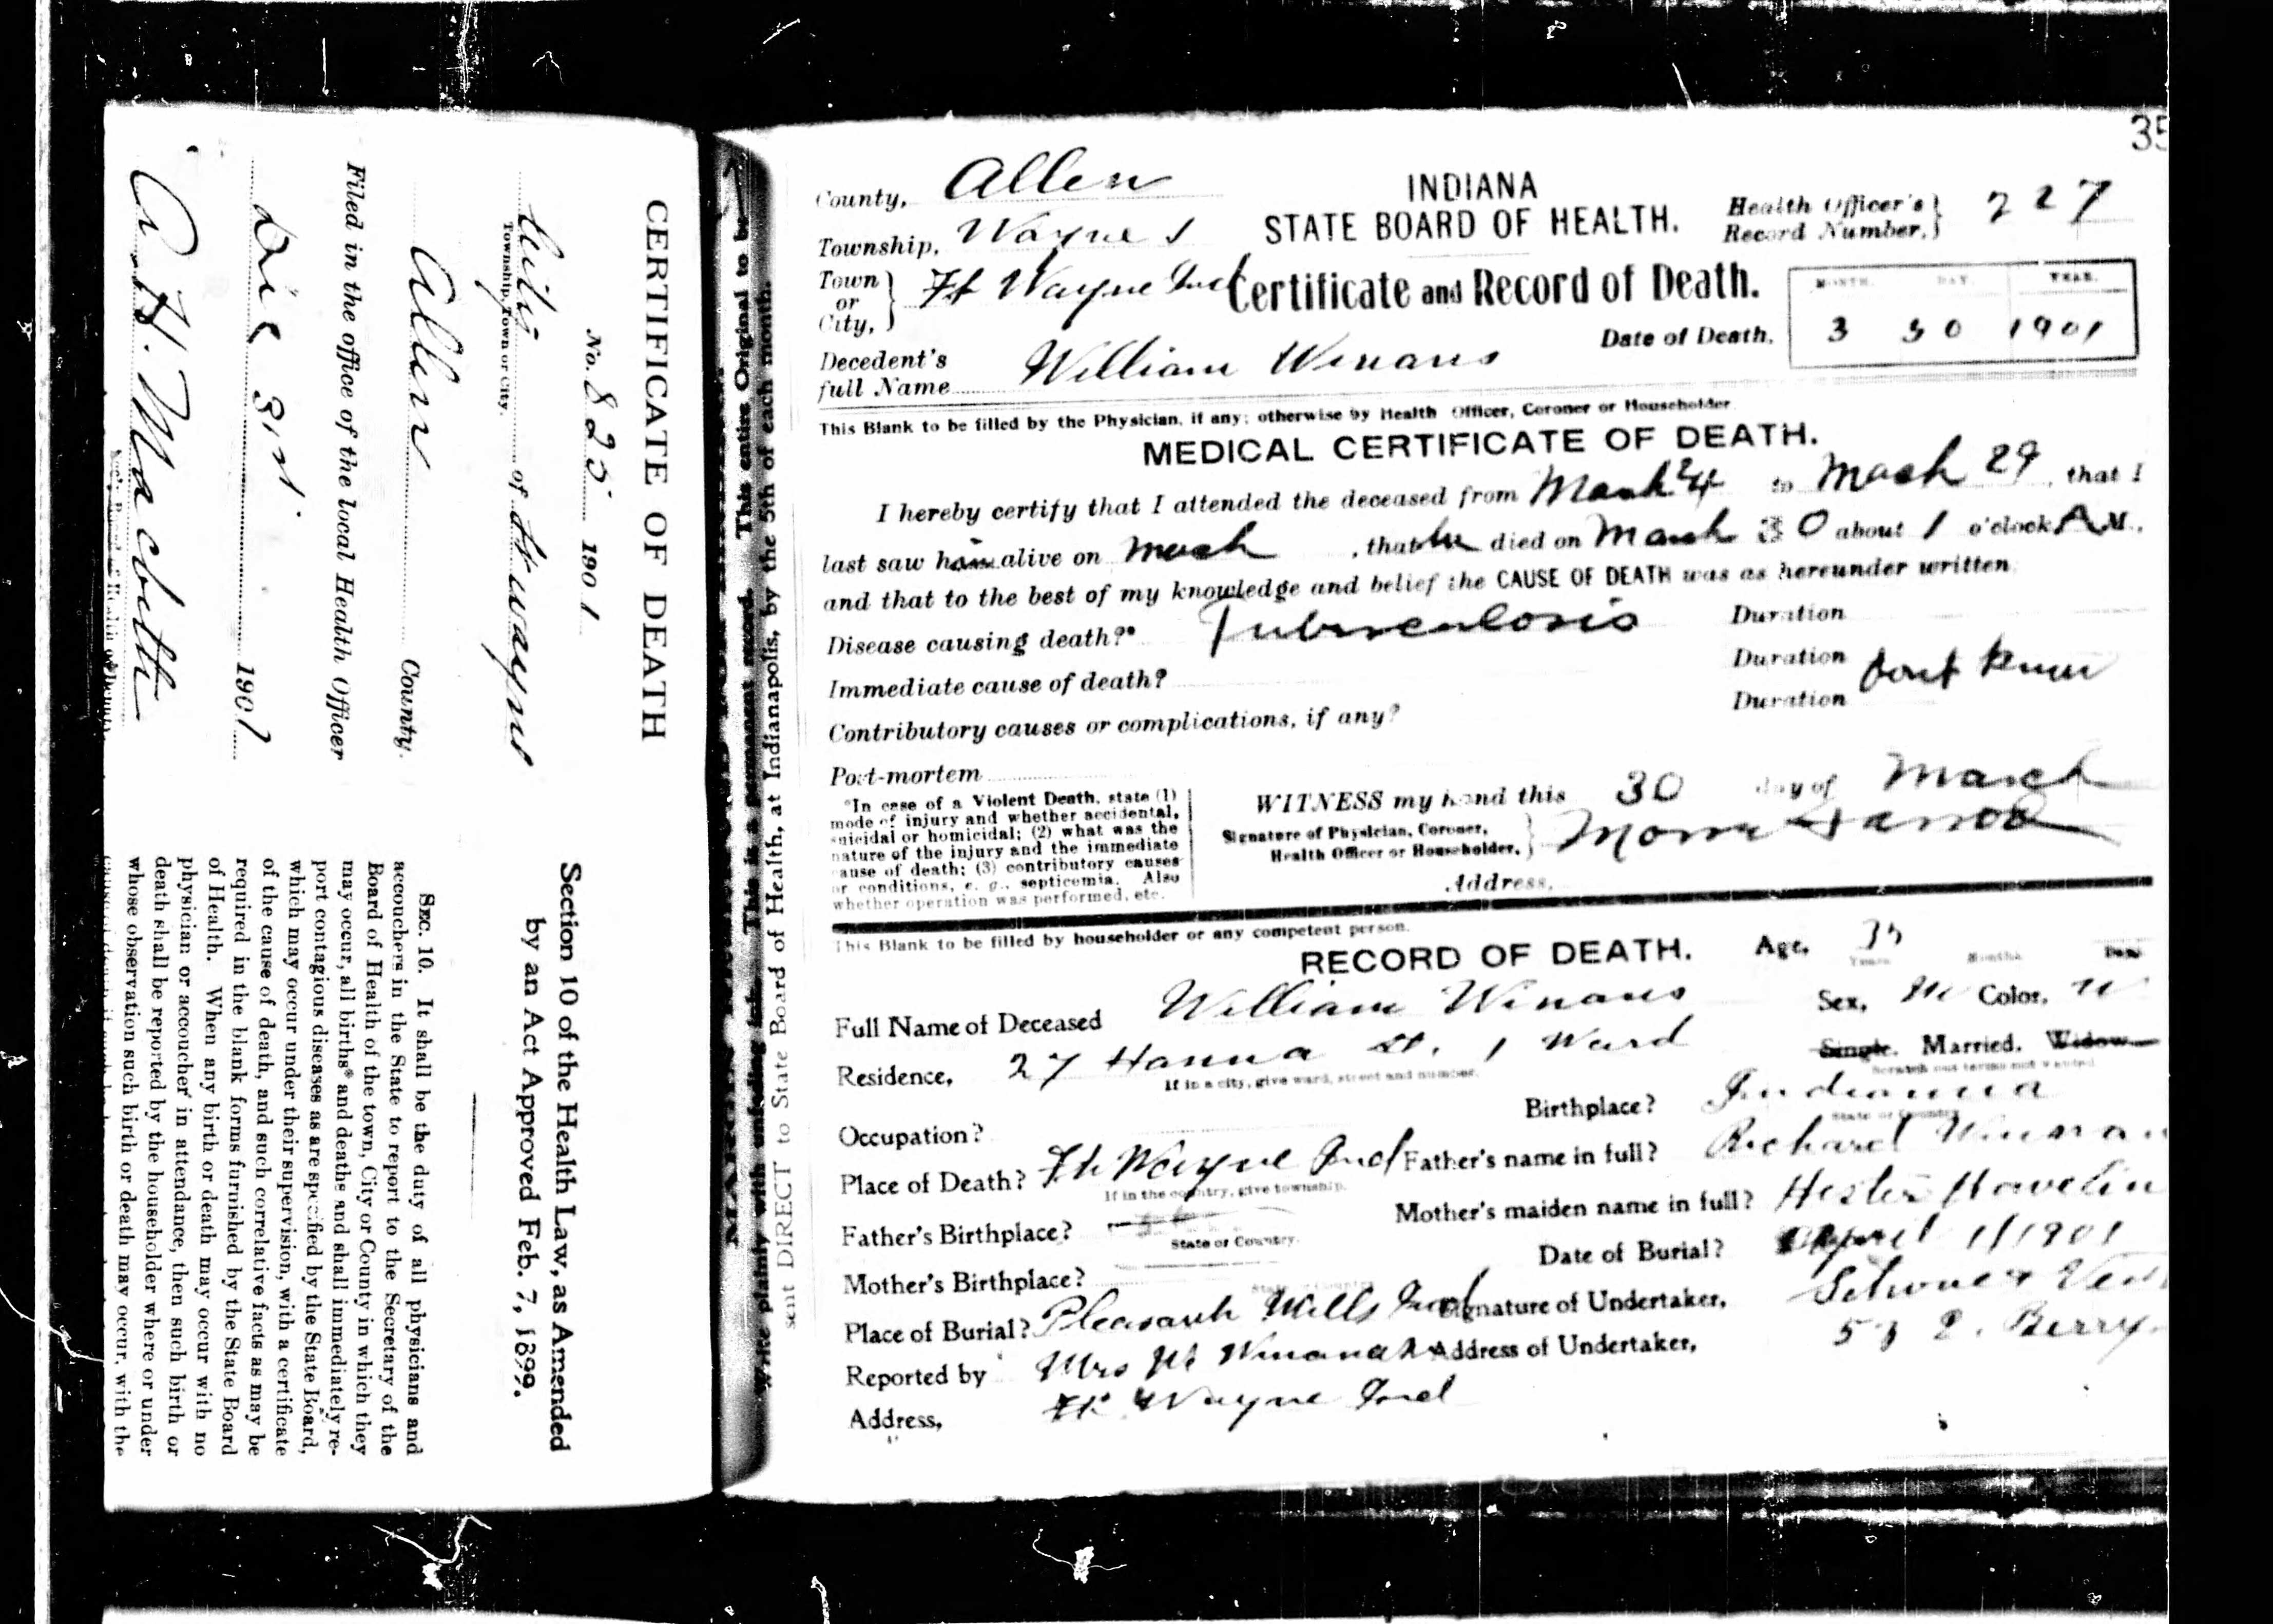 CERTIFICATE OF DEATH
No. 825 1901
City of Ft wayne
Township, Town or City.
Allen County.
Filed in the office of the local Health Officer
Dec 31st 1901
A. H. Macbeth
Section 10 of the Health Law, as Amended
by an Act Approved Feb. 7, 1899.
SEC. 10. It shall be the duty of all physicians and
accouchers in the State to report to the Secretary of the
Board of Health of the town, City or County in which they
may occur, all births* and deaths and shall immediately re-
port contagious diseases as are specified by the State Board,
which may occur under their supervision, with a certificate
of the cause of death, and such correlative facts as may be
required in the blank forms furnished by the State Board
of Health. When any birth or death may occur with no
physician or accoucher in attendance, then such birth or
death shall be reported by the householder where or under
whose observation such birth or death may occur, with the
Write plainly with unfading ink. This is a permanent record. This entire Original to be
sent DIRECT to State Board of Health, at Indianapolis, by the 5th of each month.
35
County, Allen
INDIANA
STATE BOARD OF HEALTH.
Health Officer's
Record Number, 227
Township, Wayne
Town or City, Ft Wayne Ind
Certificate and Record of Death.
MONTH. DAY. YEAR.
Date of Death, 3 30 1901
Decedent's full Name William Winans
This Blank to be filled by the Physician, if any; otherwise by Health Officer, Coroner or Householder
MEDICAL CERTIFICATE OF DEATH.
I hereby certify that I attended the deceased from March 24 to March 29, that I
last saw him alive on March, that he died on March 30 about 1 o'clock A M.,
and that to the best of my knowledge and belief the CAUSE OF DEATH was as hereunder written
Disease causing death?* Tuberculosis Duration
Immediate cause of death? Duration dont know
Contributory causes or complications, if any? Duration
Post-mortem
*In case of a Violent Death, state (1)
mode of injury and whether accidental,
suicidal or homicidal; (2) what was the
nature of the injury and the immediate
cause of death; (3) contributory causes
or conditions, e. g., septicemia. Also
whether operation was performed, etc.
WITNESS my hand this 30 day of March
Signature of Physician, Coroner,
Health Officer or Householder,
Address,
This Blank to be filled by householder or any competent person.
RECORD OF DEATH.
Age, 35
Years Months Days
Full Name of Deceased William Winans
Sex, M Color, W
Residence, 27 Hanna St. 1 Ward
If in a city, give ward, street and number.
Single. Married. Widow
Scratch out terms not wanted
Birthplace? Indiana
State or Country
Occupation?
Place of Death? Ft Wayne Ind
If in the country, give township.
Father's name in full? Richard Winan
Father's Birthplace?
State or Country.
Mother's maiden name in full? Hester
Mother's Birthplace?
State or Country
Date of Burial? April 1/1901
Place of Burial? Pleasant Mills Ind
Signature of Undertaker,
Reported by Mrs Wm Winans
Address of Undertaker, E. Berry
Address, Ft Wayne Ind